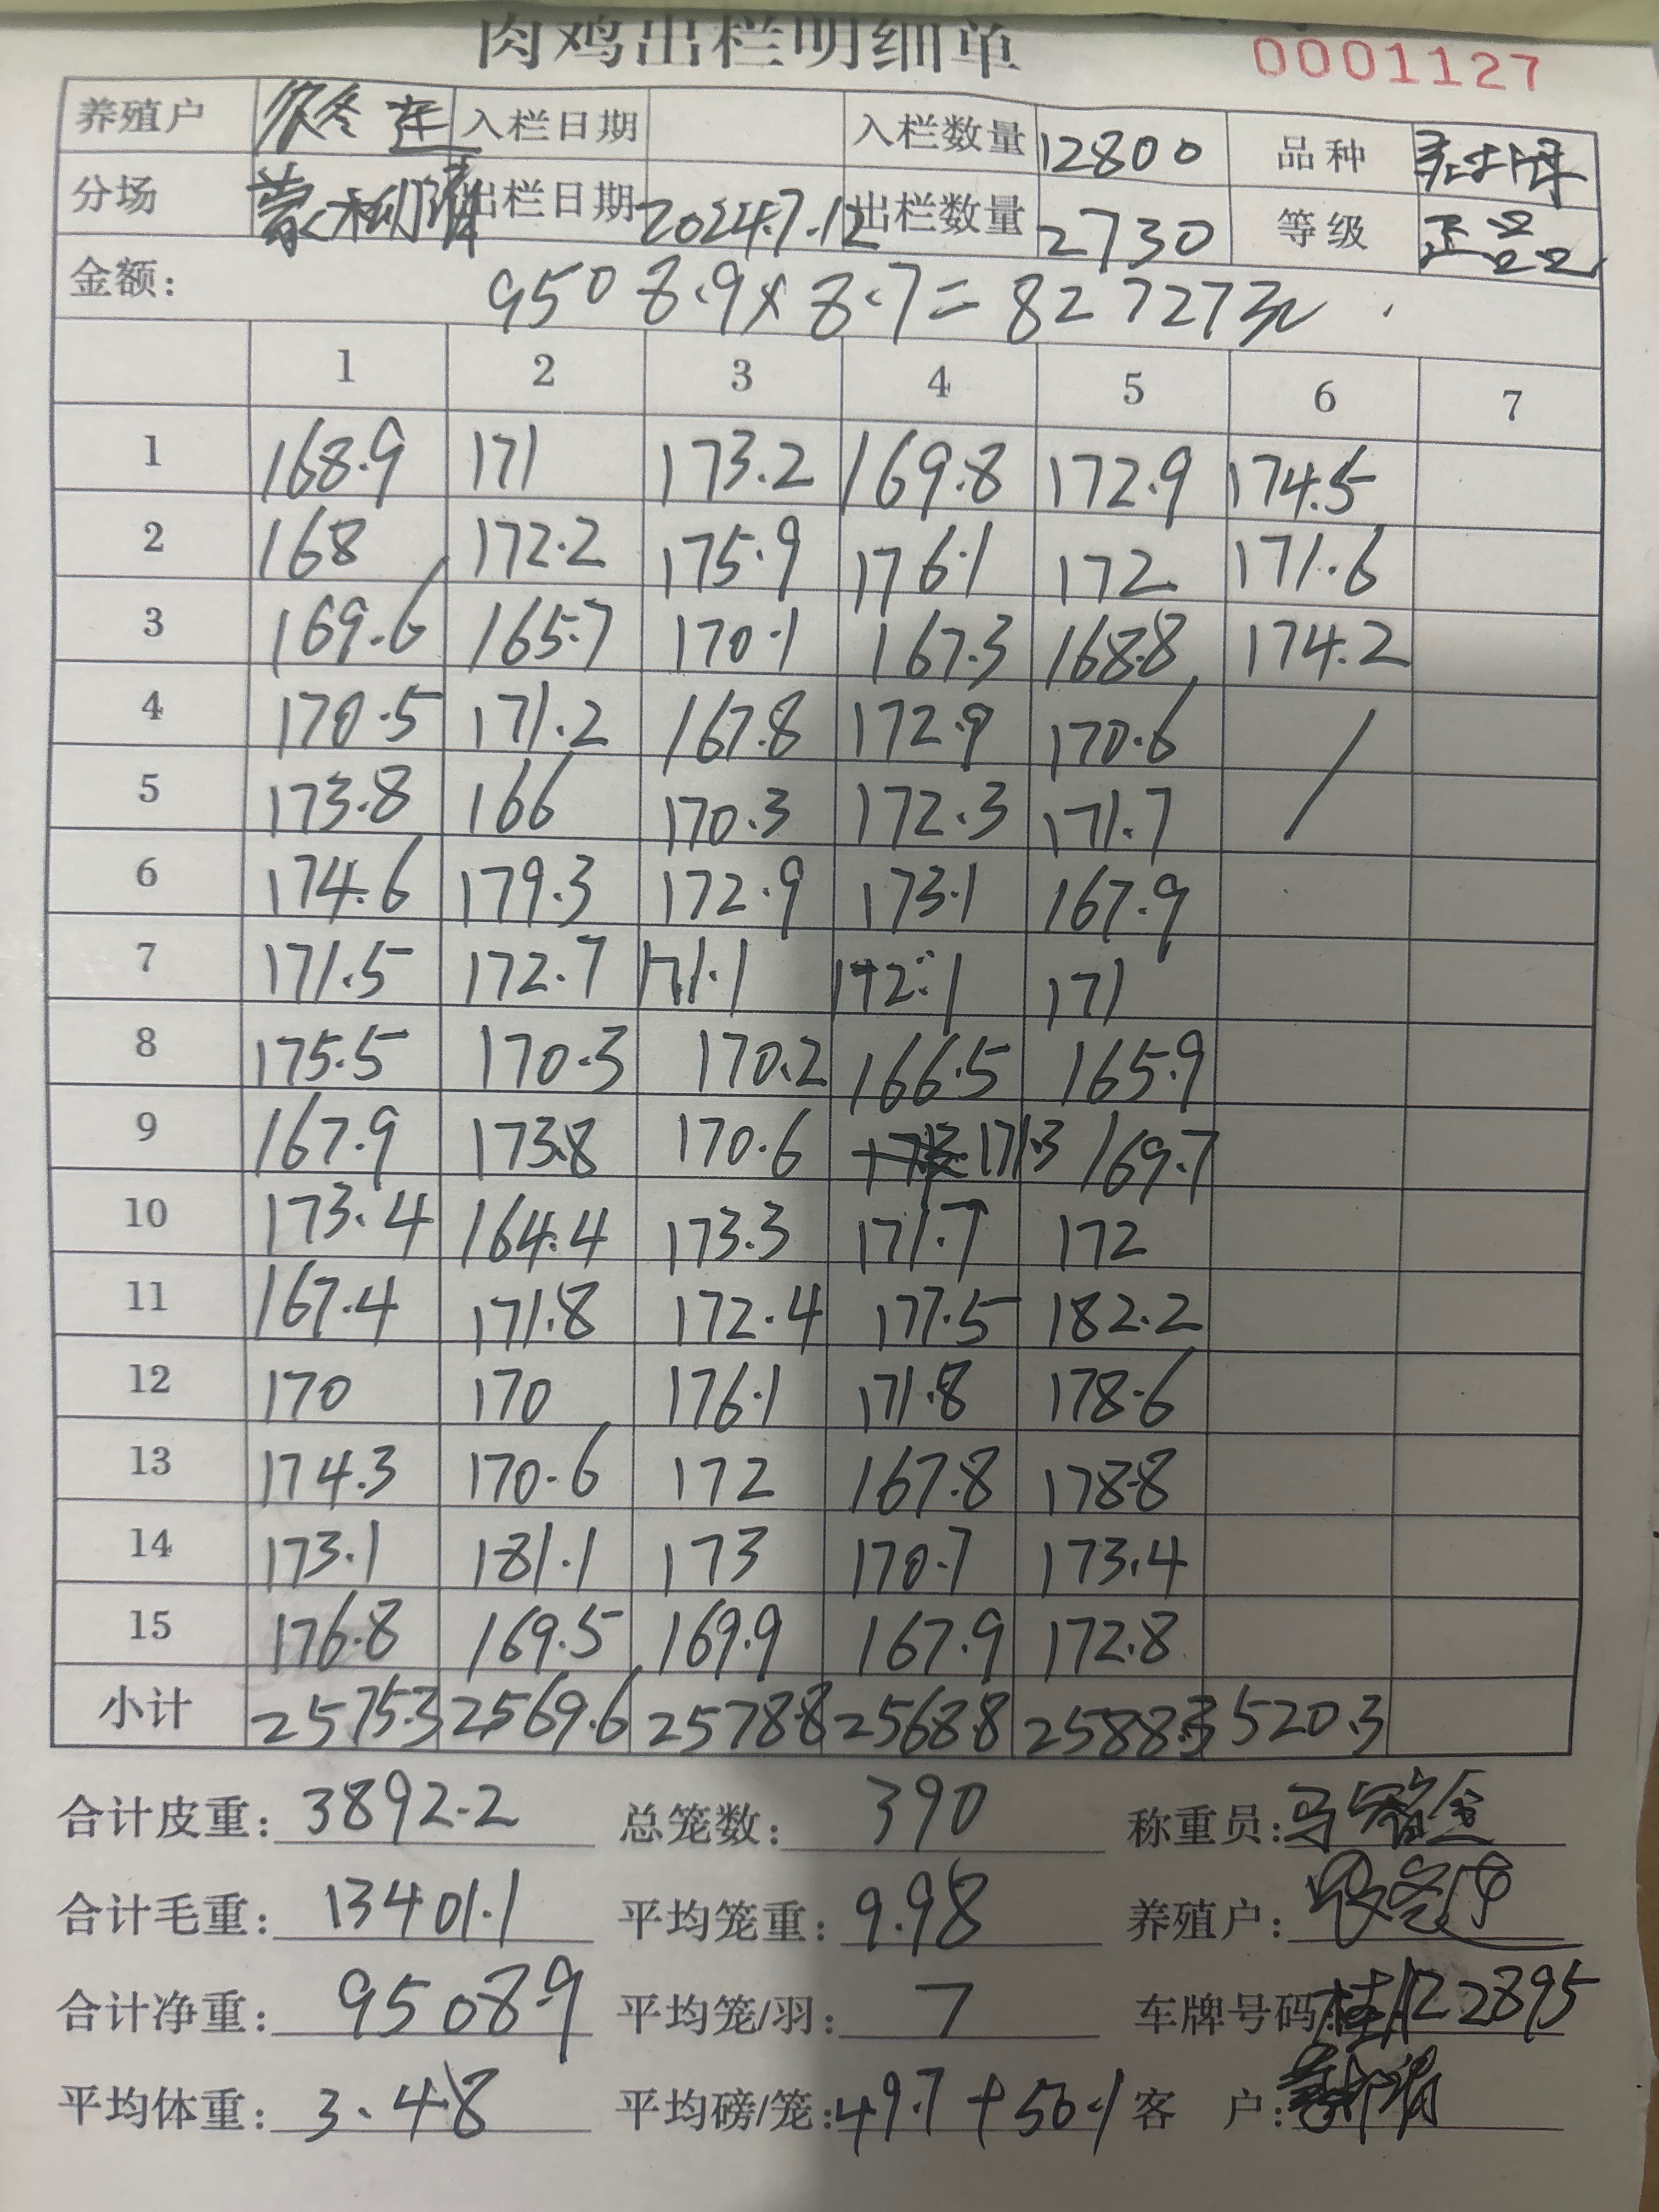 肉鸡出栏明细单 0001127
养殖户 冬连 入栏日期 入栏数量 12800 品种
分场 蒙 出栏日期 2024.7.12 出栏数量 2730 等级 正品
金额: 9508.9×8.7=82727元
1 2 3 4 5 6 7
1 168.9 171 173.2 169.8 172.9 174.5
2 168 172.2 175.9 176.1 172 171.6
3 169.6 165.7 170.1 167.3 168.8 174.2
4 170.5 171.2 167.8 172.9 170.6
5 173.8 166 170.3 172.3 171.7
6 174.6 179.3 172.9 173.1 167.9
7 171.5 172.7 171.1 172.1 171
8 175.5 170.3 170.2 166.5 165.9
9 167.9 173.8 170.6 171.3 169.7
10 173.4 164.4 173.3 171.7 172
11 167.4 171.8 172.4 177.5 182.2
12 170 170 176.1 171.8 178.6
13 174.3 170.6 172 167.8 178.8
14 173.1 181.1 173 170.7 173.4
15 176.8 169.5 169.9 167.9 172.8
小计 2575.3 2569.6 2578.8 2568.8 2588.3 520.3
合计皮重: 3892.2 总笼数: 390 称重员: 马
合计毛重: 13401.1 平均笼重: 9.98 养殖户:
合计净重: 9508.9 平均笼/羽: 7 车牌号码: 桂R22895
平均体重: 3.48 平均磅/笼: 49.7+50.1 客 户: